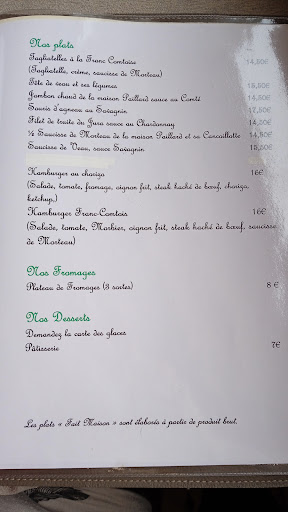 Nos plats
Tagliatelles à la Franc Comtoise 14,50€
(Tagliatelle, crème, saucisse de Morteau)
Tête de veau et ses légumes 15,50€
Jambon chaud de la maison Paillard sauce au Comté 14,50€
Souris d'agneau au Savagnin 17,50€
Filet de truite du Jura sauce au Chardonnay 14,50€
½ Saucisse de Morteau de la maison Paillard et sa Cancoillotte 14,50€
Saucisse de Veau, sauce Savagnin 15,50€
Hamburger au chorizo 16€
(Salade, tomate, fromage, oignon frit, steak haché de bœuf, chorizo,
ketchup,)
Hamburger Franc-Comtois 16€
(Salade, tomate, Morbier, oignon frit, steak haché de bœuf, saucisse
de Morteau)
Nos Fromages
Plateau de Fromages (3 sortes) 8 €
Nos Desserts
Demandez la carte des glaces
Pâtisserie 7€
Les plats « Fait Maison » sont élaborés à partir de produit brut.